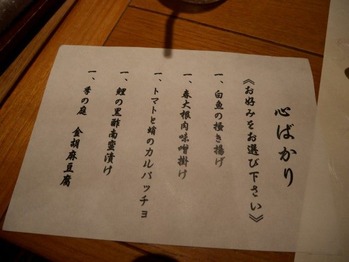 心ばかり
《お好みをお選び下さい》
一、白魚の掻き揚げ
一、春大根肉味噌掛け
一、トマトと蛸のカルパッチョ
一、鯉の黒酢南蛮漬け
一、季の庭 金胡麻豆腐